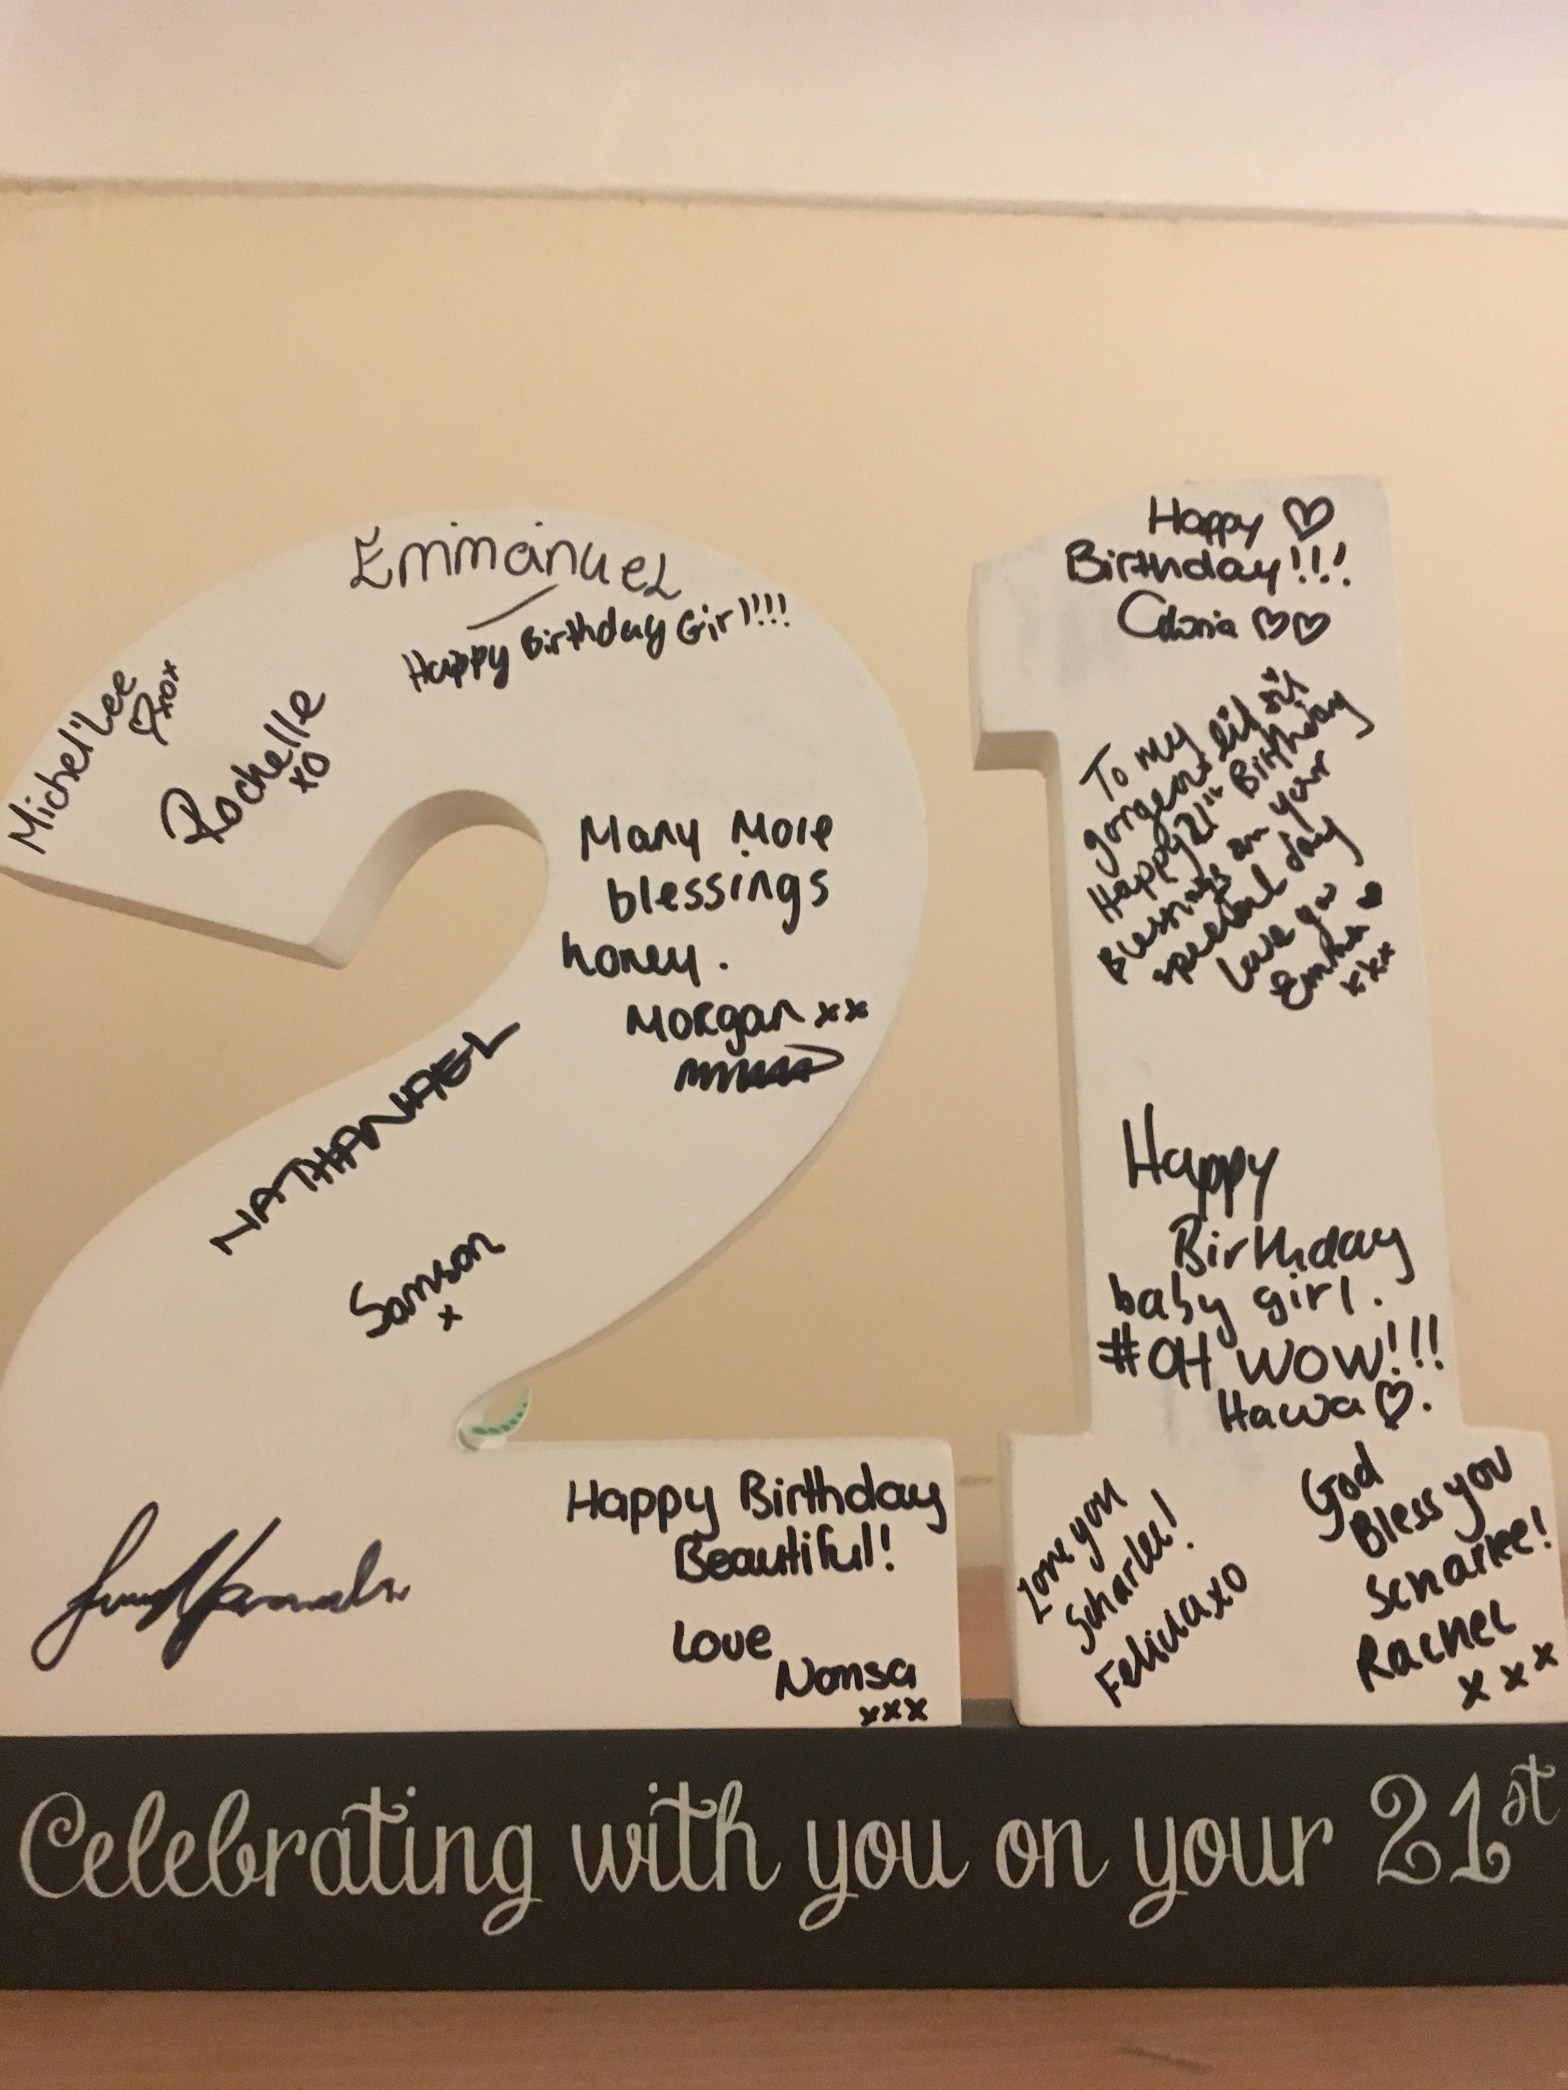 Emmanuel
Happy Birthday Girl!!!
Michel'Lee
xox
Rochelle
xo
Many More
blessings
honey.
Morgan xx
NATHANIAEL
Samson
x
Happy Birthday
Beautiful!
Love
Nomsa
xxx
Happy ♡
Birthday!!!
♡♡
To my
gorgeous lil sis
Happy 21st Birthday
Blessings on your
special day
Love you
Emma
xxx
Happy
Birthday
baby girl.
#OH WOW!!!
Hawa ♡.
Love you
Scharlee!
Felicia xo
God
Bless you
Scharlee!
Rachel
xxx
Celebrating with you on your 21st